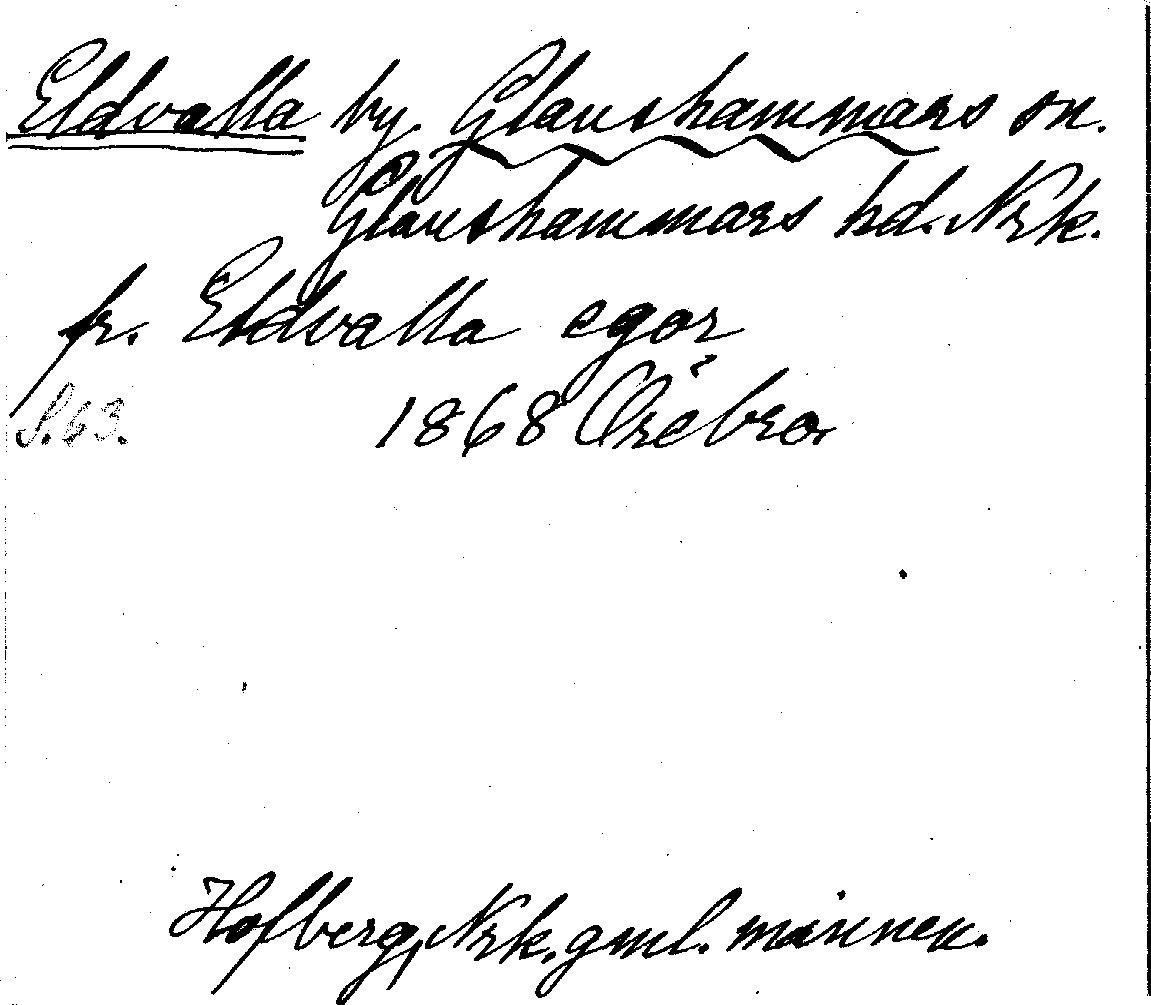 Eldvalla by Glanshammars sn.
Glanshammars hd. Nrk.
fr. Eldvalla egor
S. 63. 1868 Örebro
Hofberg, Nrk. gml. minnen.